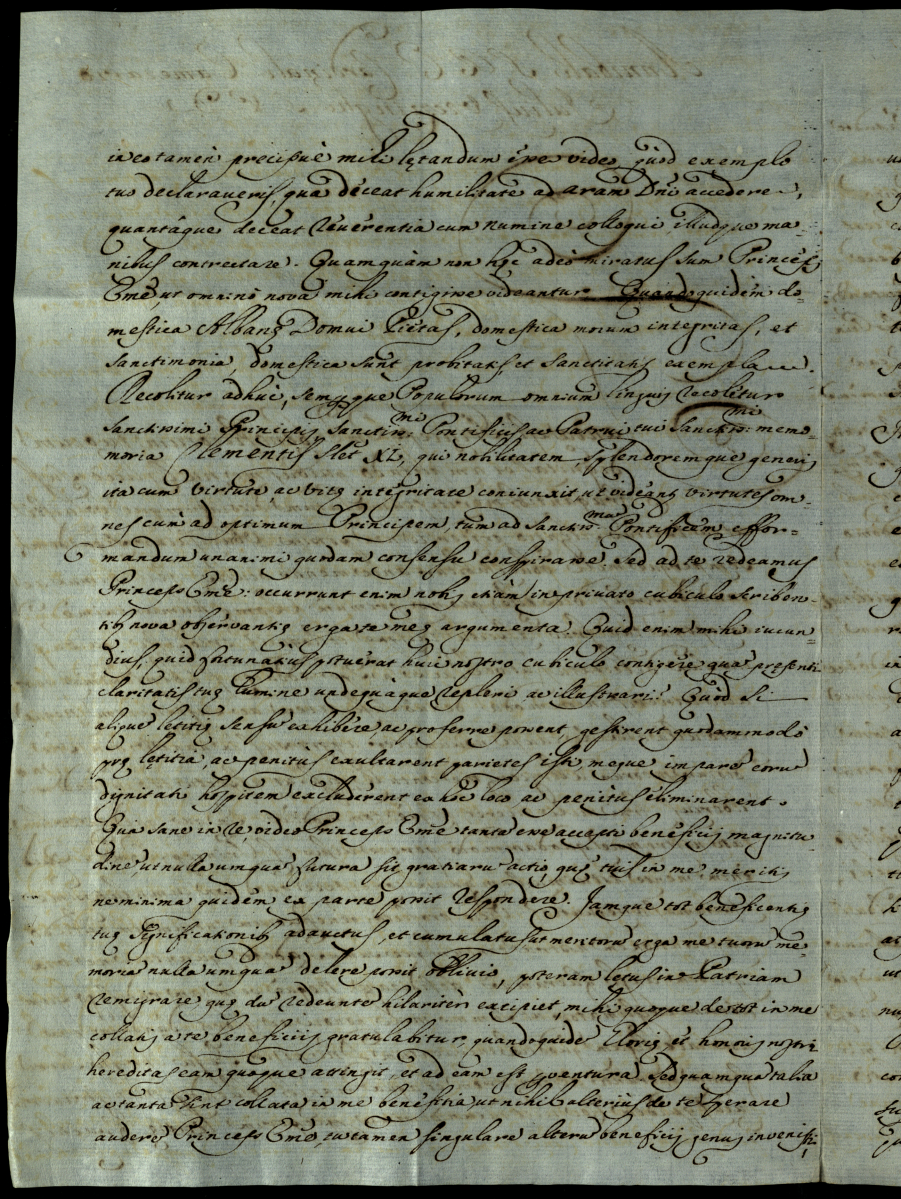 in eo tamen precipuè mihi lętandum esse video, quòd exemplo
tuo declaraveris, qua deceat humilitate ad aram Dñi accedere,
quantâque deceat reverentia cum numine colloqui illudque ma
nibus contrectare. Quamquàm non hęc adeò miratus sum Princeps
Eme, ut omninò nova mihi contigisse videantur. Quandoquidèm do
mestica Albanę Domui Pietas, domestica morum integritas, et
sanctimonia, domestica sunt probitatis, et sanctitatis exempla.
Recolitur adhùc, sempque Populorum omnium linguis recolitur
sanctissimi Principis, Sanctiss:mi Pontificis ac Patrui tui Sanctiss:mi memo
moria Clementis XI, qui nobilitatem, splendoremque generis
ita cum virtute, ac vitę integritate coniunxit, ut videanť virtutes om
nes cùm ad optimum Principem, tùm ad Sanctiss:mum Pontificem effor=
mandum unanimi quodam consensu conspirasse. Sed ad te redeamus
Princeps Eme: occurrunt enim nobis etiàm in privato cubiculo scriben
tibȝ nova observantię erga te meę argumenta. Quid enim mihi iucun
dius, quid fortunatius potuerat huic nostro cubiculo contigere quā presenti
claritatis tuę lumine undequàque repleri ac illustrari? Quòd si
alique letitię sensū exhibère, ac proferre possent, gestirent quodammodò
prę lętitia, ac penitus exultarent parietes isti, meque imparē eorū
dignitati hospitem excluderent ex hoc loco ac penitùs eliminarent.
Qua sane in re video Princeps Eme tantā esse accepti beneficij magnitu
dinē, ut nulla umquā futura sit gratiarū actio quę tuis in me meritis
ne minima quidèm ex parte possit respondere. Jamque tot beneficentię
tuę significationibȝ adauctus, et cumulatus ut meritorū erga me tuorū me
moriā nulla umquā delere possit oblivio, poteram lętus in Patriam
remigrare quę dū redeuntē hilaritèr excipiet, mihi quoque de tot in me
collatis a te beneficijs gratulabitur quandoquidē glorię, et honoris nostri
hereditas eam quoque attingit, et ad eam est pventura. Sed quamquā talia
ac tanta sint collata in me beneficia, ut nihil alterius de te sperare
auderē, Princeps Eme, tu tamen singulare alterū beneficij genus invenisti,